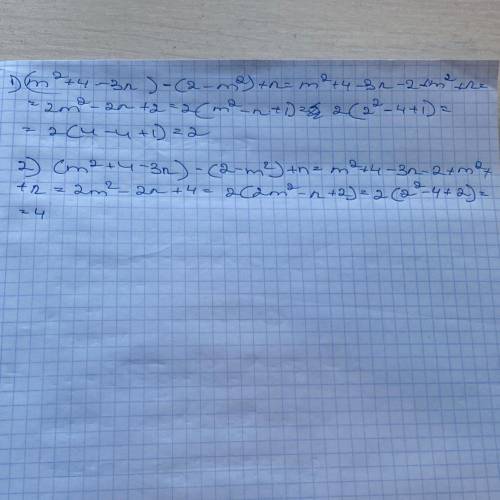 1) (m²+4-3n) - (2-m²)+n = m²+4-3n-2+m²+n=
= 2m²-2n+2 = 2(m²-n+1) = 2(2²-4+1) =
= 2(4-4+1) = 2
2) (m²+4-3n) - (2-m²)+n = m²+4-3n-2+m²+
+n = 2m²-2n+4 = 2(2m²-n+2) = 2(2²-4+2) =
= 4